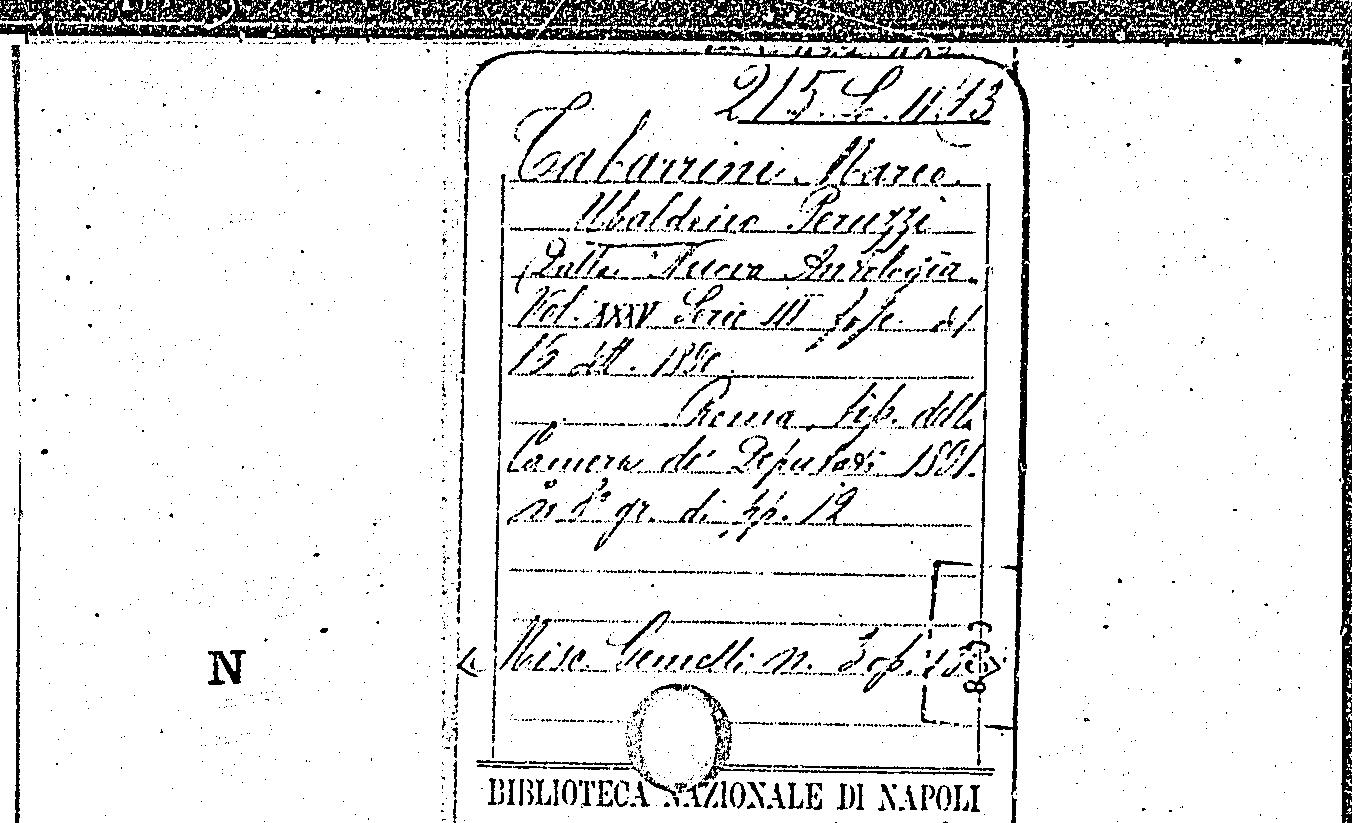 215. L. 11.(13
Tabarrini Marco.
Ubaldino Peruzzi
(Dalla Nuova Antologia.
Vol. XXXV Serie III fasc. del
15 ott. 1891.
Roma, tip. della
Camera de' Deputati 1891.
in 8º gr. di pp. 12
N
Misc. Gemelli n. 3 op.
BIBLIOTECA NAZIONALE DI NAPOLI